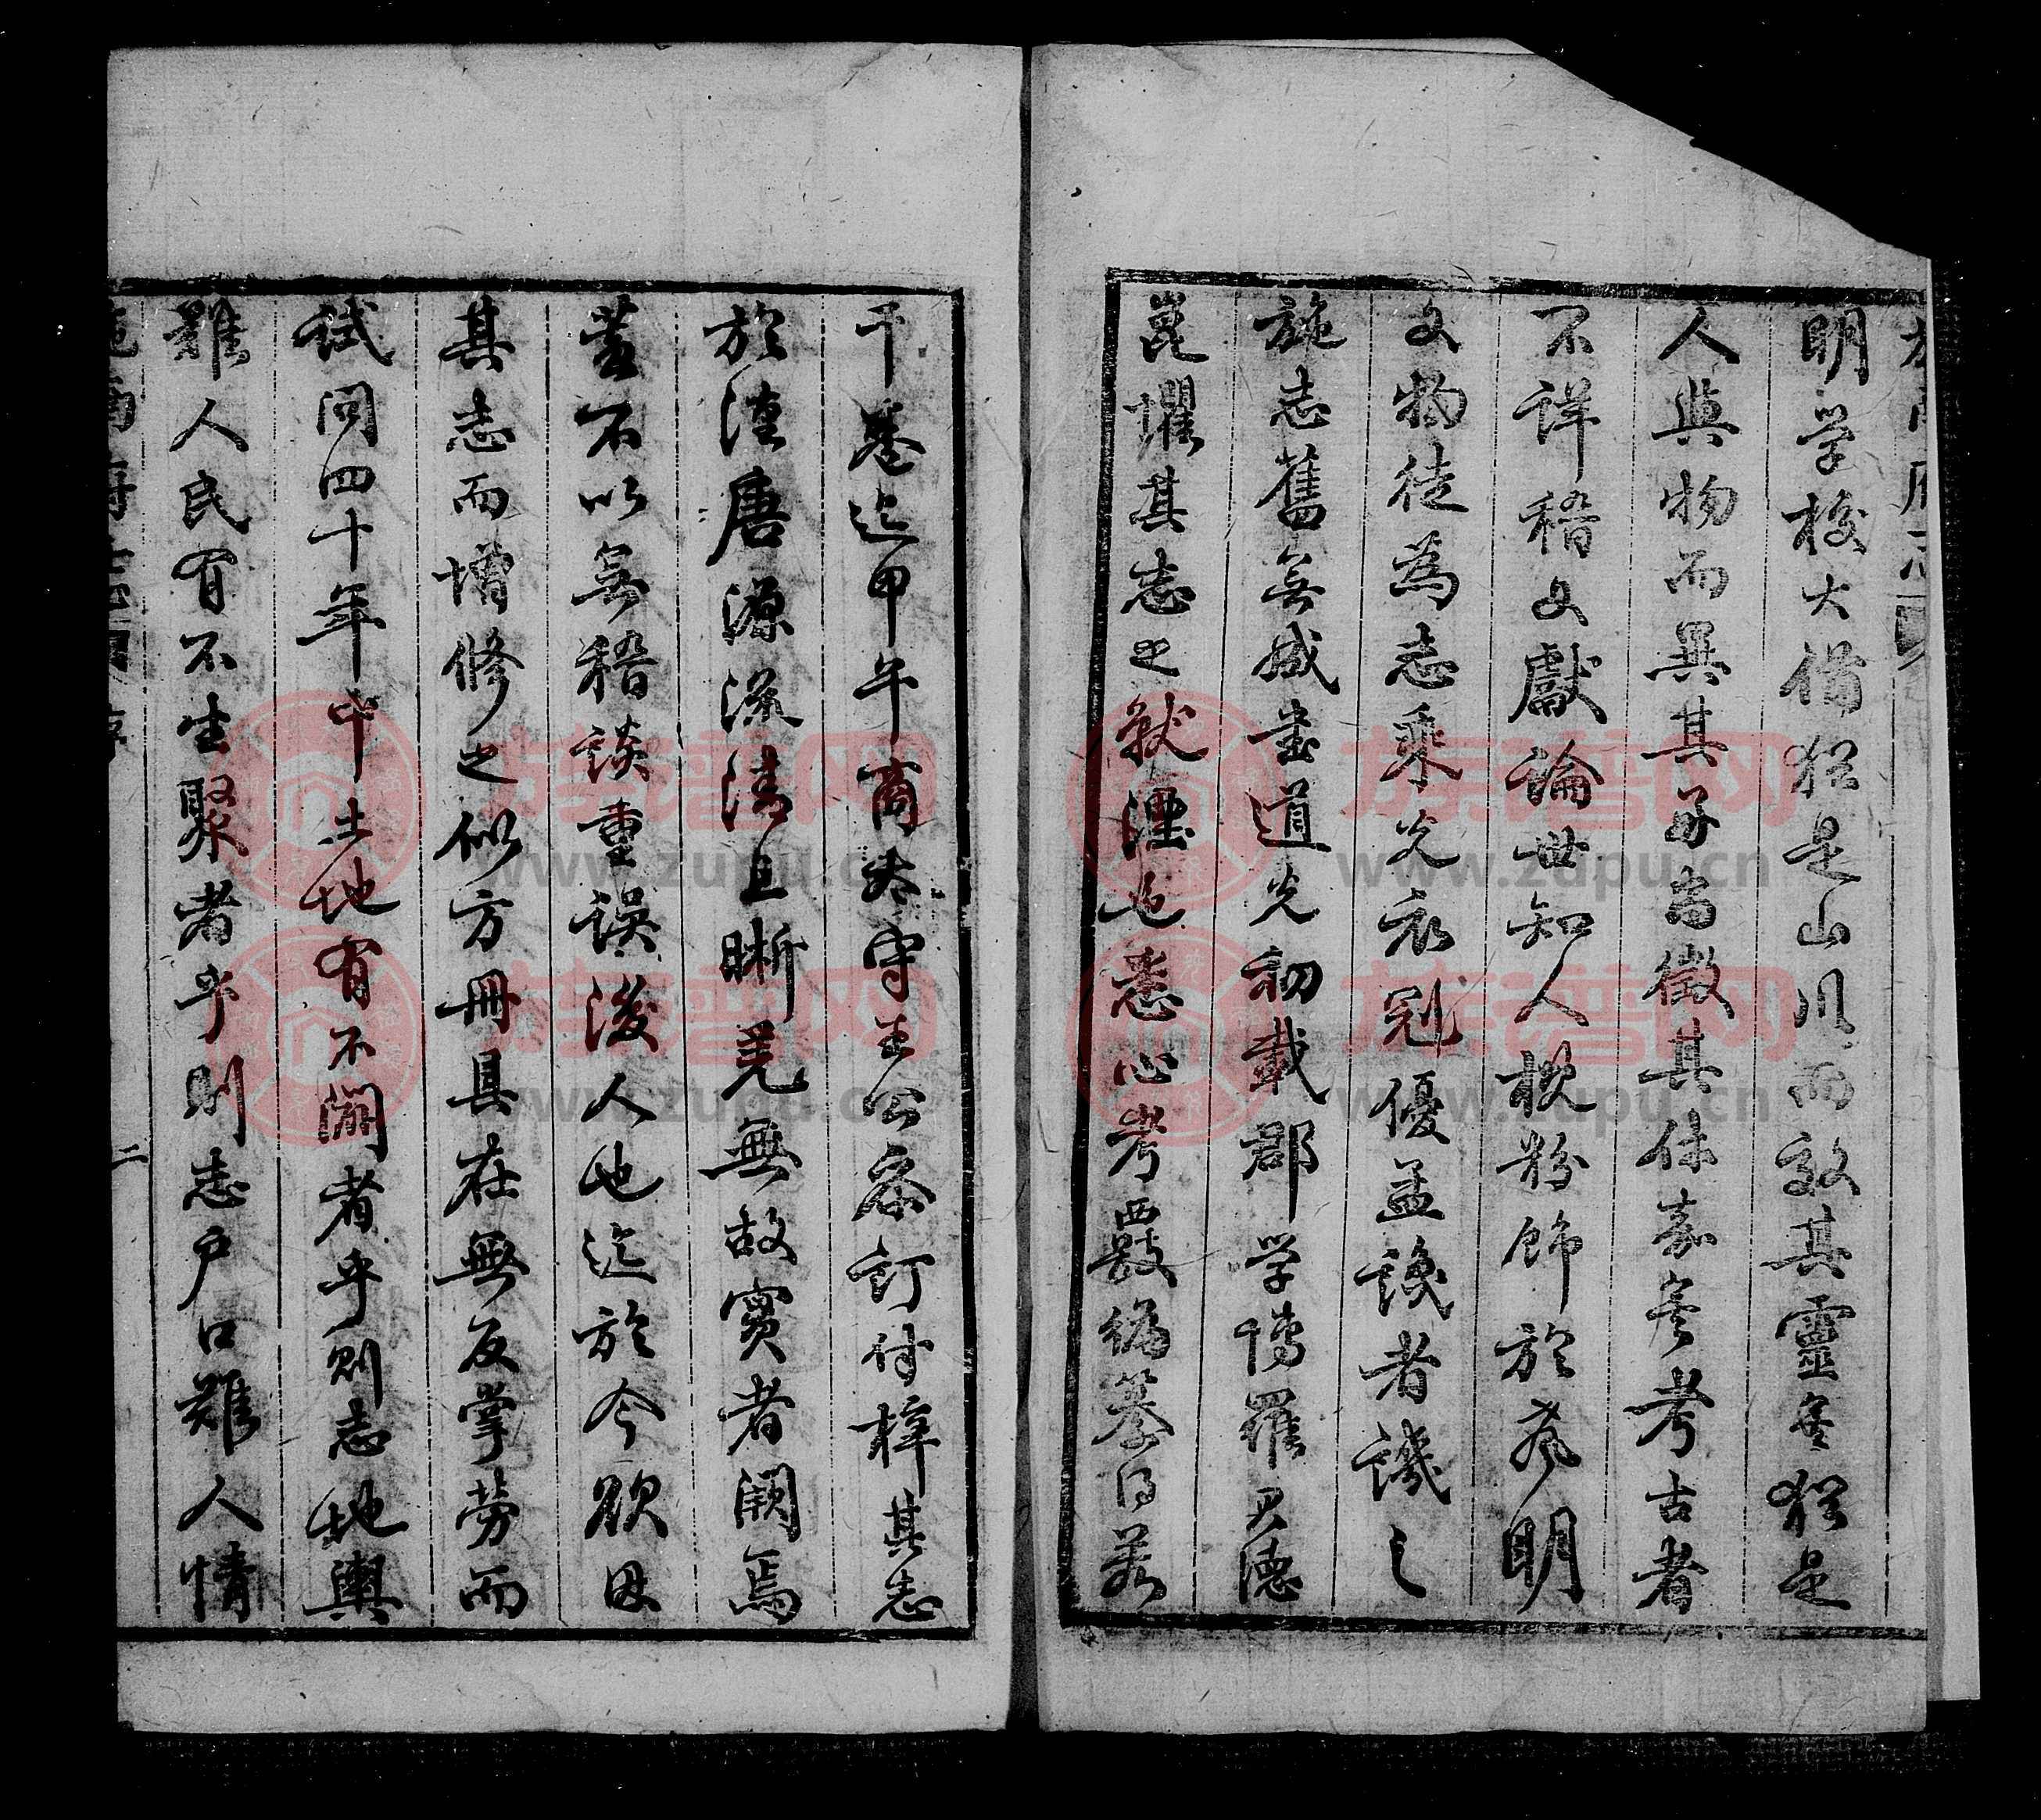 明學校大備猶是山川而效其靈異猶是
人與物而異其好尚徵其休嘉矣考古者
不詳稽文獻論世知人概粉飾於友明
文物徒為志乘光衣冠優孟識者譏之
施志舊無成書道光初載郡學博羅君德
崑懼其志之就湮也悉心考覈編纂得若
干卷迄甲午商太守王公參訂付梓其志
於漢唐源流清且晰羌無故實者闕焉
蓋不以無稽談重誤後人也迄於今欲因
其志而增修之似方冊具在無反掌勞而
試問四十年中土地有不闢者乎則志地輿
難人民有不生聚者乎則志戶口難人情
施南府志 序 二
族谱网
www.zupu.cn
族谱网
www.zupu.cn
族谱网
www.zupu.cn
族谱网
www.zupu.cn